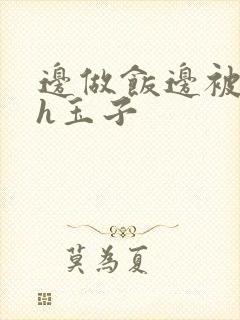 邊做飯邊被
h玉子
莫為夏